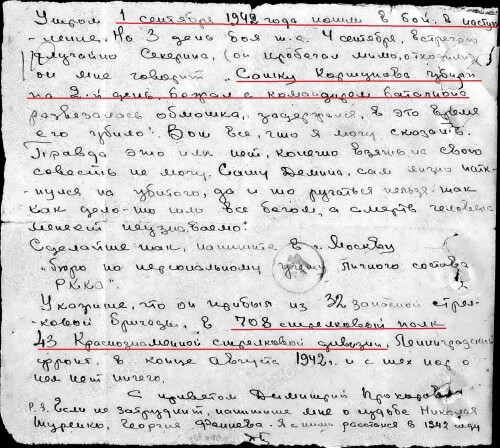 Утром 1 сентября 1942 года пошли в бой, в наступ-
-ление. На 3 день боя т.е. 4 сентября, встречаю
случайно Секерина, (он пробегал мимо,
он мне говорит „Сашку Коршунова убили
на 2-й день, бежал с командиром батальона
развязалась обмотка, задержался, в это время
его убило". Вот все, что я могу сказать.
Правда это или нет, конечно взять на свою
совесть не могу. Сашу Демина, сам лично натк-
нулся на убитого, да и то ручаться нельзя так
как дело-то шло все бегом, а смерть человека
меняет неузнаваемо.
Сделайте так, напишите в г. Москву
„Бюро по персональному учету личного состава
РККА".
Укажите, что он прибыл из 32 запасной стрел-
-ковой бригады, в 708 стрелковый полк
43 Краснознаменной стрелковой дивизии, Ленинградский
фронт. в конце августа 1942 г. и с тех пор о
нем нет ничего.
С приветом Димитрий Прохоров
P.S. Если не затруднит, напишите мне о судьбе Николая
Шуренко, Георгия Я с ними расстался в 1942 году